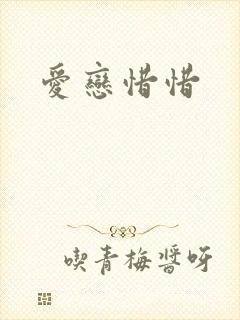 愛戀惜惜
喫青梅醬呀